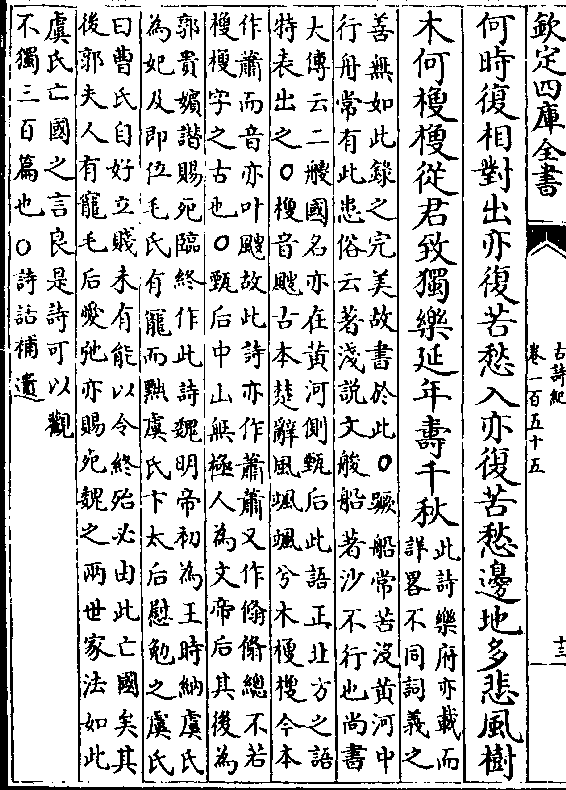 欽定四庫全書
古詩紀
卷一百五十五
十三
何時復相對出亦復苦愁入亦復苦愁邊地多悲風樹
木何㮴㮴從君致獨樂延年壽千秋
此詩樂府亦載而
詳畧不同詞義之
善無如此錄之完美故書於此○蹶船常苦沒黃河中
行舟常有此患俗云著淺説文艐船著沙不行也尚書
大傳云二艐國名亦在黃河側甄后此語正北方之語
特表出之○㮴音颼古本楚辭風颯颯兮木㮴㮴今本
作蕭而音亦叶颼故此詩亦作蕭蕭又作翛翛總不若
㮴㮴字之古也○甄后中山無極人為文帝后其後為
郭貴嬪譖賜死臨終作此詩魏明帝初為王時納虞氏
為妃及即位毛氏有寵而黜虞氏卞太后慰勉之虞氏
曰曹氏自好立賤未有能以令終殆必由此亡國矣其
後郭夫人有寵毛后愛弛亦賜死魏之兩世家法如此
虞氏亡國之言良是詩可以觀
不獨三百篇也○詩話補遺